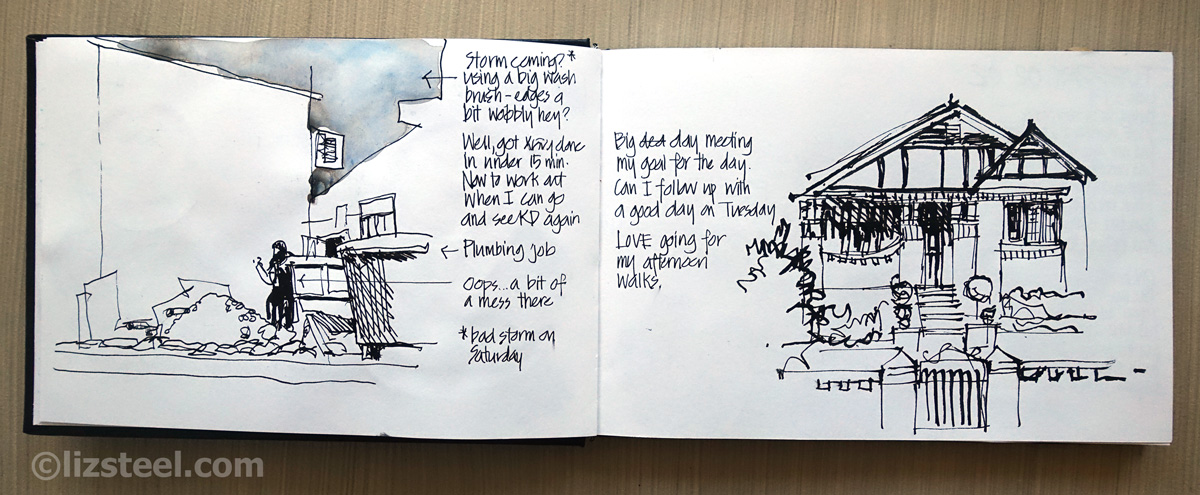 Storm coming?*
using a big wash
brush - edges a
bit wobbly hey?
Well, got done
in under 15 min.
Now to work out
when I can go
and see KD again
Plumbing job
Oops... a bit of
a mess there
* bad storm on
Saturday
Big day meeting
my goal for the day.
Can I follow up with
a good day on Tuesday
LOVE going for
my afternoon
walks.
©lizsteel.com